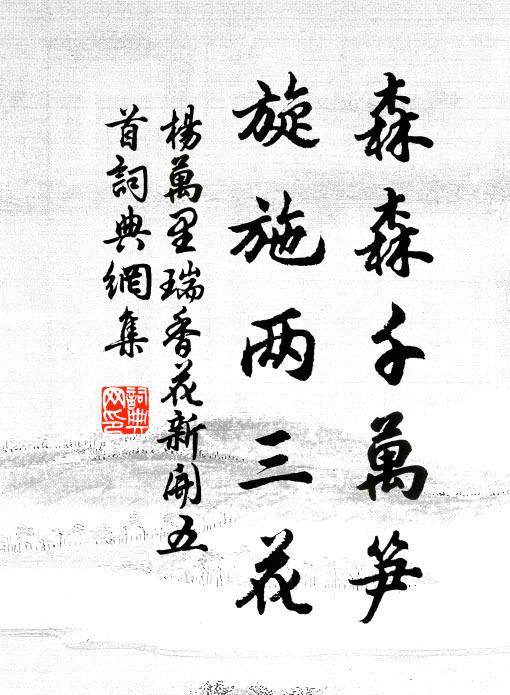 森森千萬笋
旋施两三花
楊萬里瑞香花新開五
首詞典網集
詞典
网印